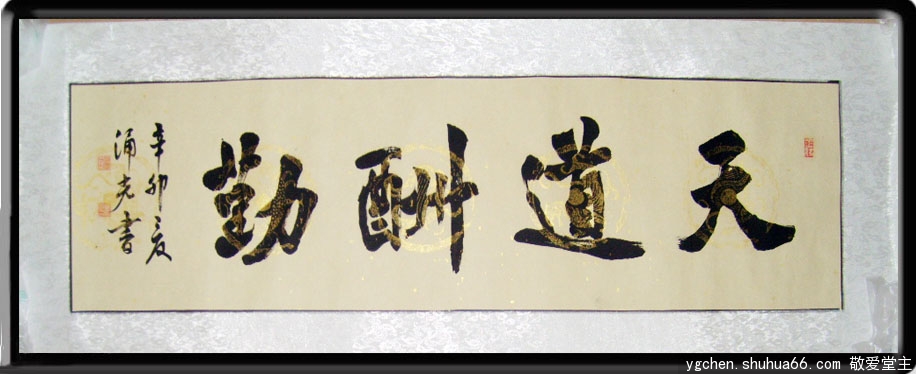 天道酬勤
辛卯之夏
涌光書
ygchen.shuhua66.com 敬爱堂主